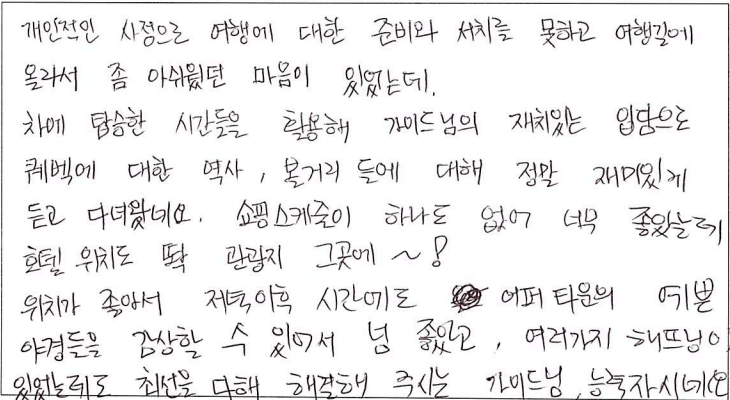 개인적인 사정으로 여행에 대한 준비와 서치를 못하고 여행길에
올라서 좀 아쉬웠던 마음이 있었는데,
차에 탑승한 시간들을 활용해 가이드님의 재치있는 입담으로
퀘벡에 대한 역사, 볼거리 들에 대해 정말 재미있게
듣고 다녀왔네요. 쇼핑스케줄이 하나도 없어 너무 좋았는데
호텔 위치도 딱 관광지 그곳에 ~!
위치가 좋아서 저녁이후 시간에도 어퍼타운의 예쁜
야경들을 감상할 수 있어서 넘 좋았고, 여러가지 해프닝이
있었는데도 최선을 다해 해결해 주시는 가이드님, 능력자시네요